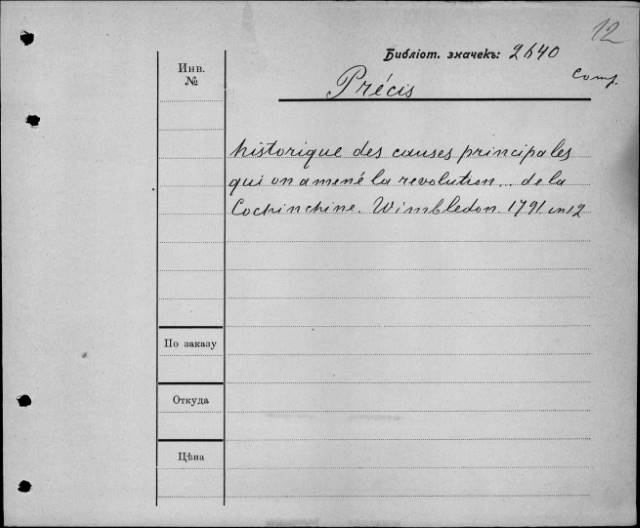 12
Библіот. значекъ: 2640
comp.
Инв.
№
Précis
historique des causes principales
qui on amené la revolution... de la
Cochinchine. Wimbledon. 1791. in 12
По заказу
Откуда
Цѣна